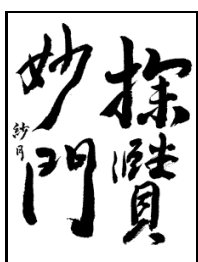 探賾
妙門
紗月